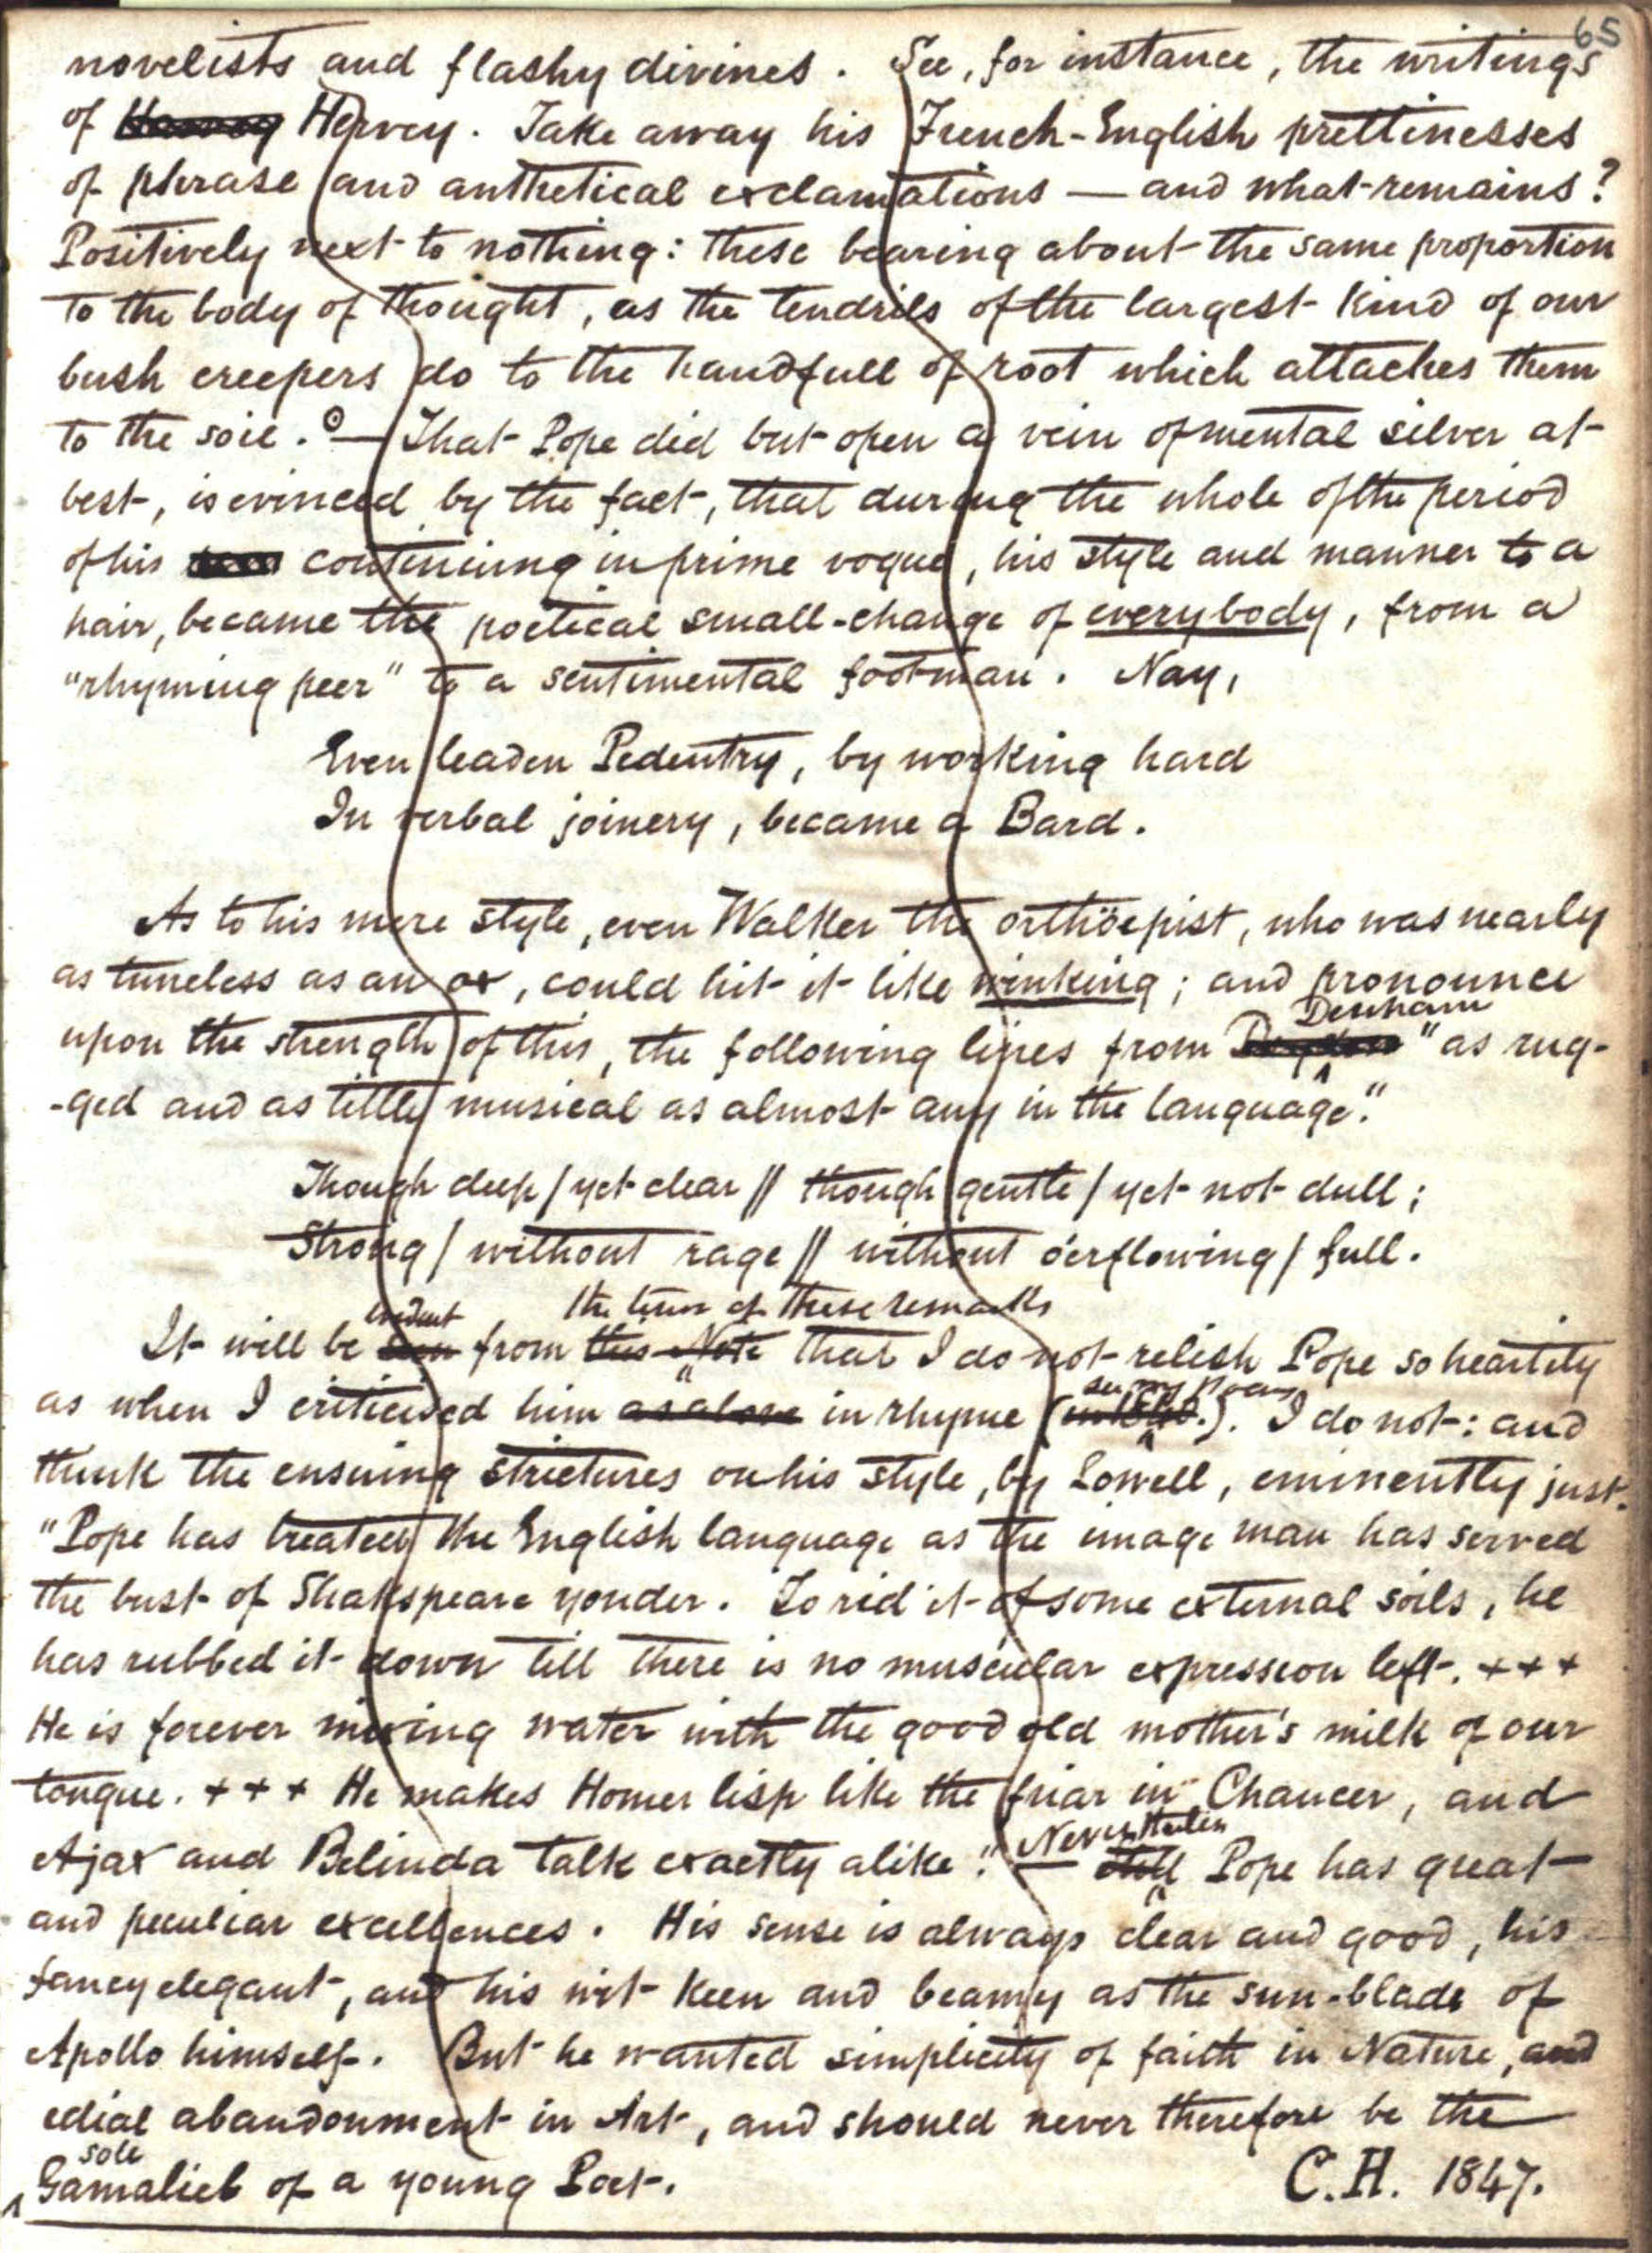 65
novelists and flashy divines. See, for instance, the writings
of Hervey. Take away his French-English prettinesses
of phrase and anthetical exclamations — and what remains?
Positively next to nothing: these bearing about the same proportion
to the body of thought, as the tendrils of the largest kind of our
bush creepers do to the handfull of root which attaches them
to the soil. — That Pope did but open a vein of mental silver at
best, is evinced by the fact, that during the whole of the period
of his continuing in prime vogue, his style and manner to a
hair, became the poetical small-change of everybody, from a
"rhyming peer" to a sentimental footman. Nay,
Even leaden Pedentry, by working hard
In verbal joinery, became a Bard.
As to his mere style, even Walker the orthöepist, who was nearly
as tuneless as an ox, could hit it like winking; and pronounce
Denham
upon the strength of this, the following lines from "as rug-
-ged and as little musical as almost any in the language."
Though deep / yet clear // though gentle / yet not dull;
Strong / without rage // without o'erflowing / full.
evident the tenor of these remarks
It will be seen from this Note that I do not relish Pope so heartily
see my Poem
as when I criticised him as alone in rhyme ( ). I do not: and
think the ensuing strictures on his style, by Lowell, eminently just.
"Pope has treated the English language as the image man has served
the bust of Shakspeare yonder. To rid it of some external soils, he
has rubbed it down till there is no muscular expression left. + + +
He is forever mixing water with the good old mother's milk of our
tongue. + + + He makes Homer lisp like the friar in Chaucer, and
Nevertheless
Ajax and Belinda talk exactly alike." — still Pope has great
and peculiar excellences. His sense is always clear and good, his
fancy elegant, and his wit keen and beamy as the sun-blade of
Apollo himself. But he wanted simplicity of faith in Nature, and
edial abandonment in Art, and should never therefore be the
sole
Gamaliel of a young Poet. C.H. 1847.